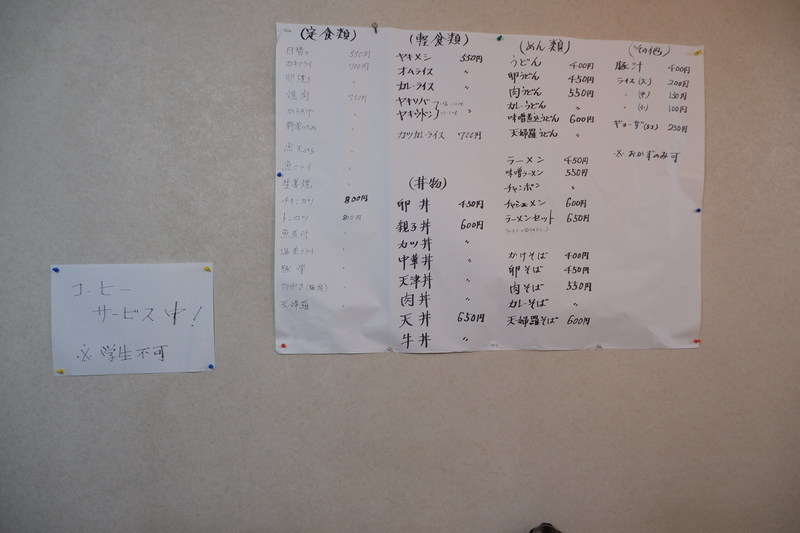 (定食類)
日替り 550円
カキフライ 700円
焼肉 750円
からあげ
野菜いため
魚フライ
生姜焼
チキンカツ 800円
トンカツ 800円
魚煮付
海老フライ
天婦羅
(軽食類)
ヤキメシ 550円
オムライス 〃
カレーライス 〃
ヤキソバ
ヤキウドン
カツカレーライス 700円
(丼物)
卵丼 450円
親子丼 600円
カツ丼 〃
中華丼 〃
天津丼 〃
肉丼 〃
天丼 650円
牛丼 〃
(めん類)
うどん 400円
卵うどん 450円
肉うどん 550円
カレーうどん 〃
味噌煮込うどん 600円
天婦羅うどん 〃
ラーメン 450円
味噌ラーメン 550円
チャンポン 〃
チャシューメン 600円
ラーメンセット 650円
かけそば 400円
卵そば 450円
肉そば 550円
カレーそば 〃
天婦羅そば 600円
(その他)
豚汁 400円
ライス(大) 200円
〃 (中) 150円
〃 (小) 100円
ギョーザ 250円
※おかずのみ可
コーヒー
サービス中!
※学生不可